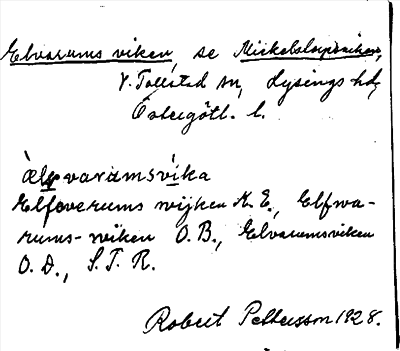 Elvarums viken, se Mickelstorpsviken,
V. Tollstad sn, Lysings hd,
Östergötl. l.
àlvvaràmsvika
Elfverums wijken K. E., Elfwa-
rums-wiken O. B., Elvarumsviken
O. D., S. T. R.
Robert Pettersson 1928.